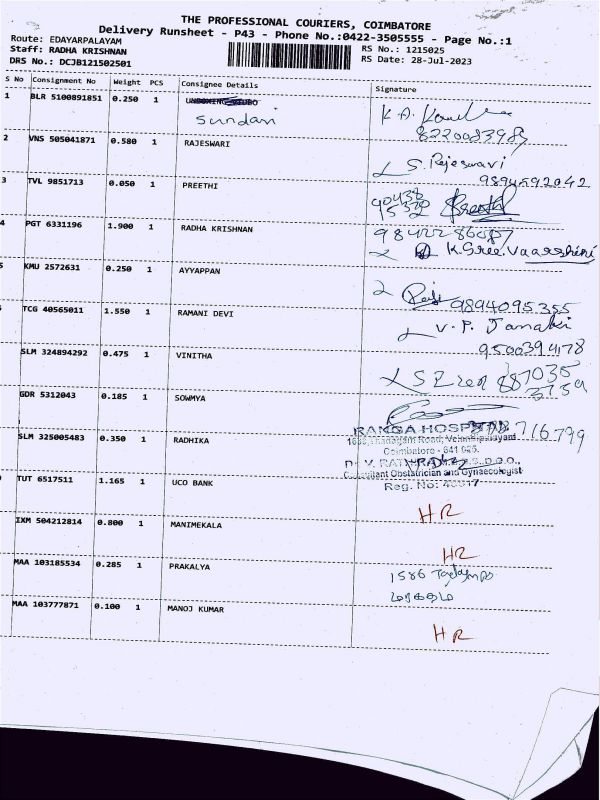 THE PROFESSIONAL COURIERS, COIMBATORE
Delivery Runsheet - P43 - Phone No.:0422-3505555 - Page No.:1
Route: EDAYARPALAYAM
RS No.: 1215025
Staff: RADHA KRISHNAN
RS Date: 28-Jul-2023
DRS No.: DCJB121502501
S No Consignment No Weight PCS Consignee Details Signature
1 BLR 5100891851 0.250 1
Sundari
K.A.
8220083985
2 VNS 505041871 0.580 1 RAJESWARI
S. Rajeswari
9894592042
3 TVL 9851713 0.050 1 PREETHI
90438
4 PGT 6331196 1.900 1 RADHA KRISHNAN
K. Sree Vaarshini
5 KMU 2572631 0.250 1 AYYAPPAN
9894095355
TCG 40565011 1.550 1 RAMANI DEVI
V. P. Janaki
9500394178
SLM 324894292 0.475 1 VINITHA
887035
GDR 5312043 0.185 1 SOWMYA
716799
SLM 325005483 0.350 1 RADHIKA
RANGA HOSPITAL
Coimbatore - 641 025.
Consultant Obstetrician and Gynaecologist
Reg. No:
TUT 6517511 1.165 1 UCO BANK
HR
IXM 504212814 0.800 1 MANIMEKALA
HR
MAA 103185534 0.285 1 PRAKALYA
1586
MAA 103777871 0.100 1 MANOJ KUMAR
HR